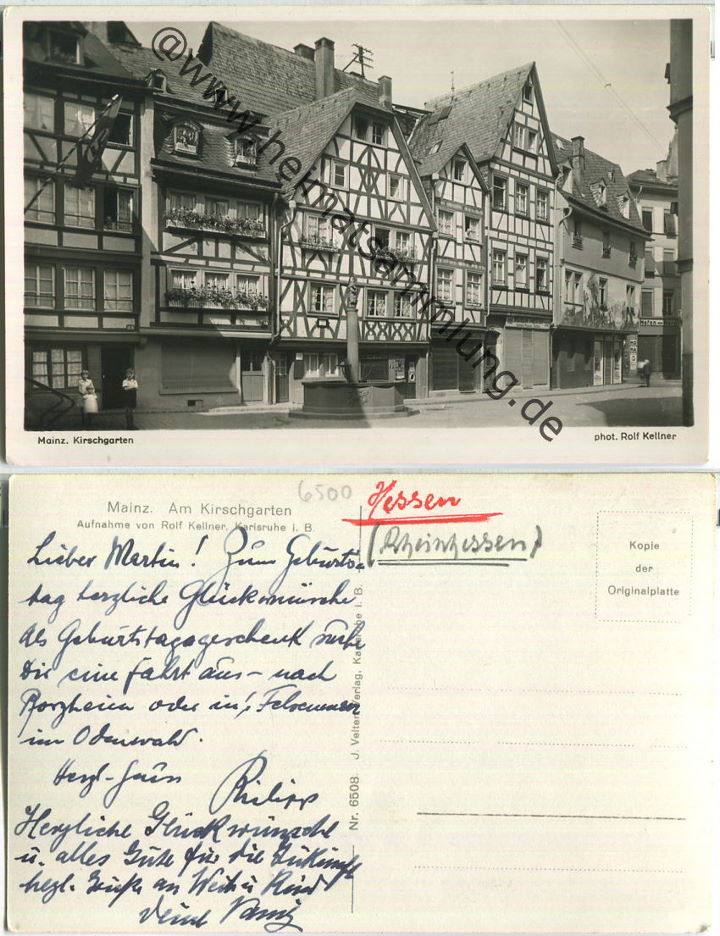 @www.heimatsammlung.de
Mainz. Kirschgarten
phot. Rolf Kellner
6500
Hessen
(Rheinhessen)
Mainz. Am Kirschgarten
Aufnahme von Rolf Kellner, Karlsruhe i. B.
Kopie
der
Originalplatte
Nr. 6508. J. Velten, Verlag, Karlsruhe i. B.
Lieber Martin! Zum Geburts-
tag herzliche Glückwünsche
als Geburtstagsgeschenk suche
Dir eine Fahrt aus – nach
oder ins Felsenmeer
im Odenwald.
Herzl. Gruss
Philipp
Herzliche Glückwünsche
u. alles Gute für die Zukunft
herzl. Grüße an Weib u Kind
Deine